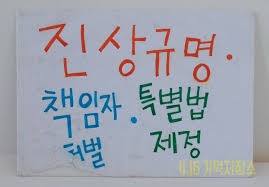 진상규명.
책임자. 특별법
처벌 제정
4.16 기억저장소